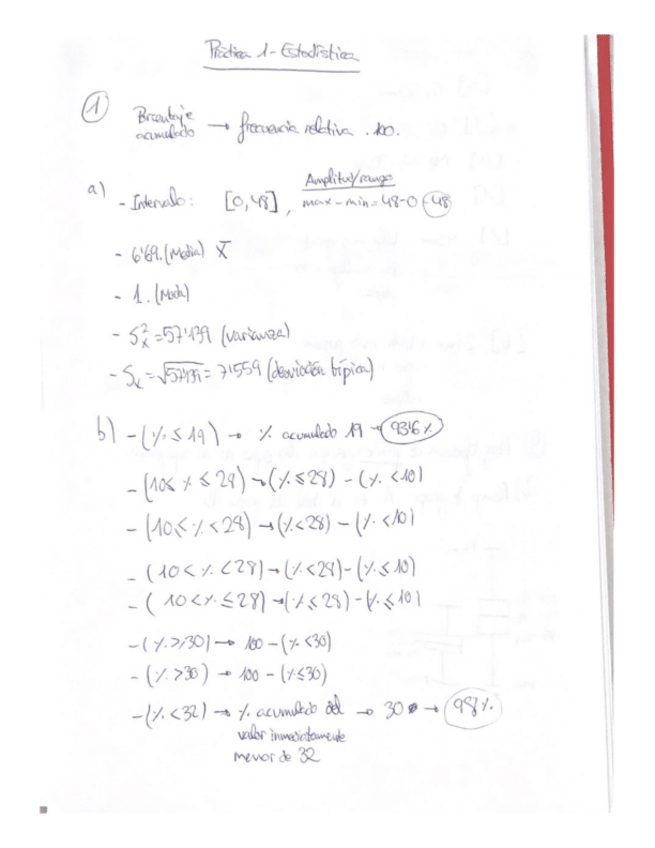 Práctica 1 - Estadística
① Porcentaje
acumulado → frecuencia relativa . 100.
a) - Intervalo: [0,48], Amplitud/rango
max - min = 48-0 = 48
- 6'69. (Media) X̅
- 1. (Moda)
- S²ₓ = 57'139 (varianza)
- Sₓ = √57'139 = 7'559 (desviación típica)
b) - (% ≤ 19) → % acumulado 19 → 93'6 %
- (10 ≤ % ≤ 28) → (% ≤ 28) - (% < 10)
- (10 ≤ % < 28) → (% < 28) - (% < 10)
- (10 < % < 28) → (% < 28) - (% ≤ 10)
- (10 < % ≤ 28) → (% ≤ 28) - (% ≤ 10)
- (% ≥ 30) → 100 - (% < 30)
- (% > 30) → 100 - (% ≤ 30)
- (% < 32) → % acumulado del → 30 → 98'1 %.
valor inmediatamente
menor de 32